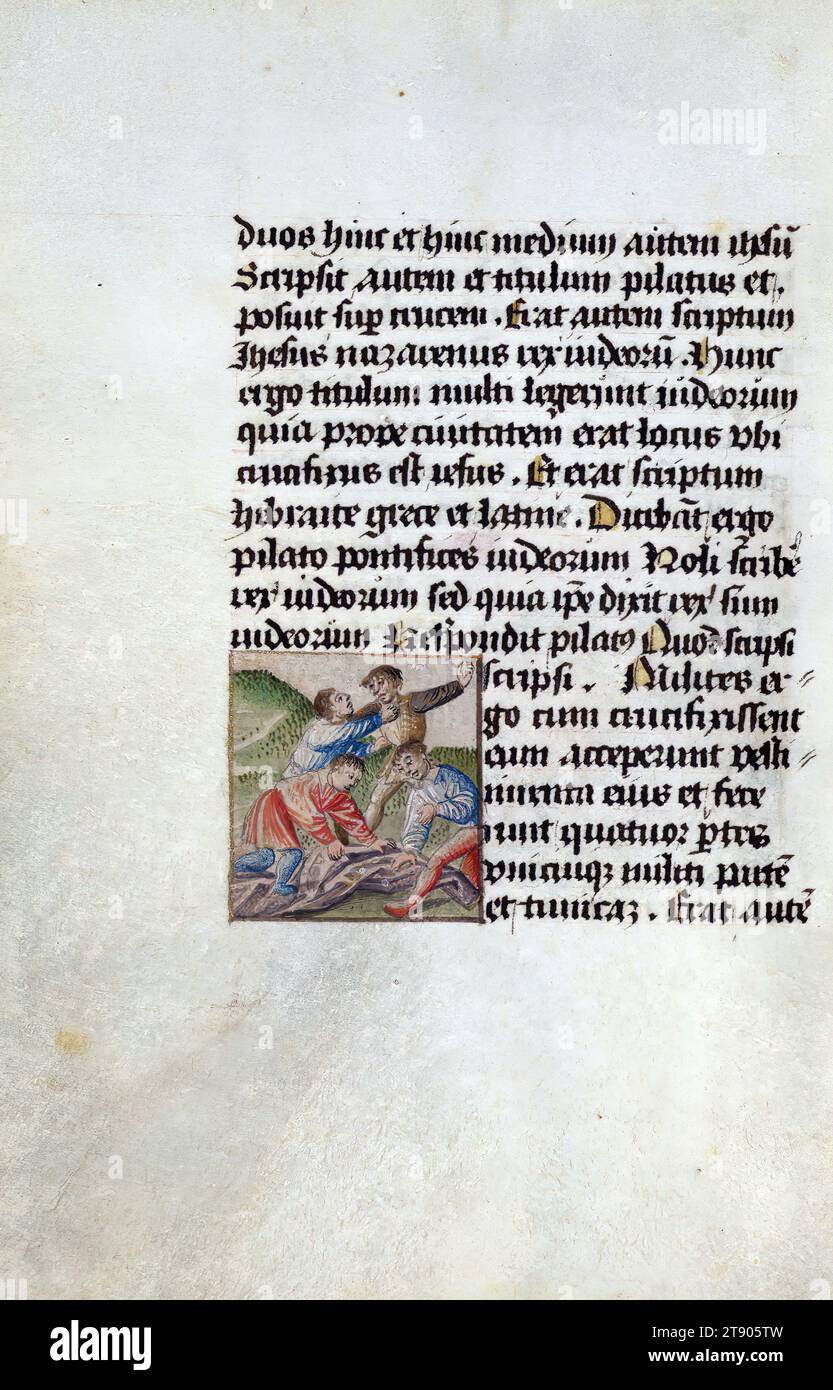 duos hinc et hinc medium autem ihesū
Scripsit autem et titulum pilatus et
posuit sup crucem. Erat autem scriptum
Ihesus nazarenus rex iudeorū. Hunc
ergo titulum multi legerunt iudeorum
quia prope ciuitatem erat locus vbi
crucifixus est iesus. Et erat scriptum
hebraice grece et latine. Dicebāt ergo
pilato pontifices iudeorum Noli scribē
rex iudeorum sed quia ipe dixit rex sum
iudeorum Respondit pilatꝯ Quod scripsi
scripsi. Milites er-
go cum crucifixissent
eum acceperunt vesti-
menta eius et fece
runt quatuor ptes
vnicuiqꝫ militi partē
et tunicaz. Erat autē
alamy
a
a
alamy
Image ID: 2T905TW
www.alamy.com